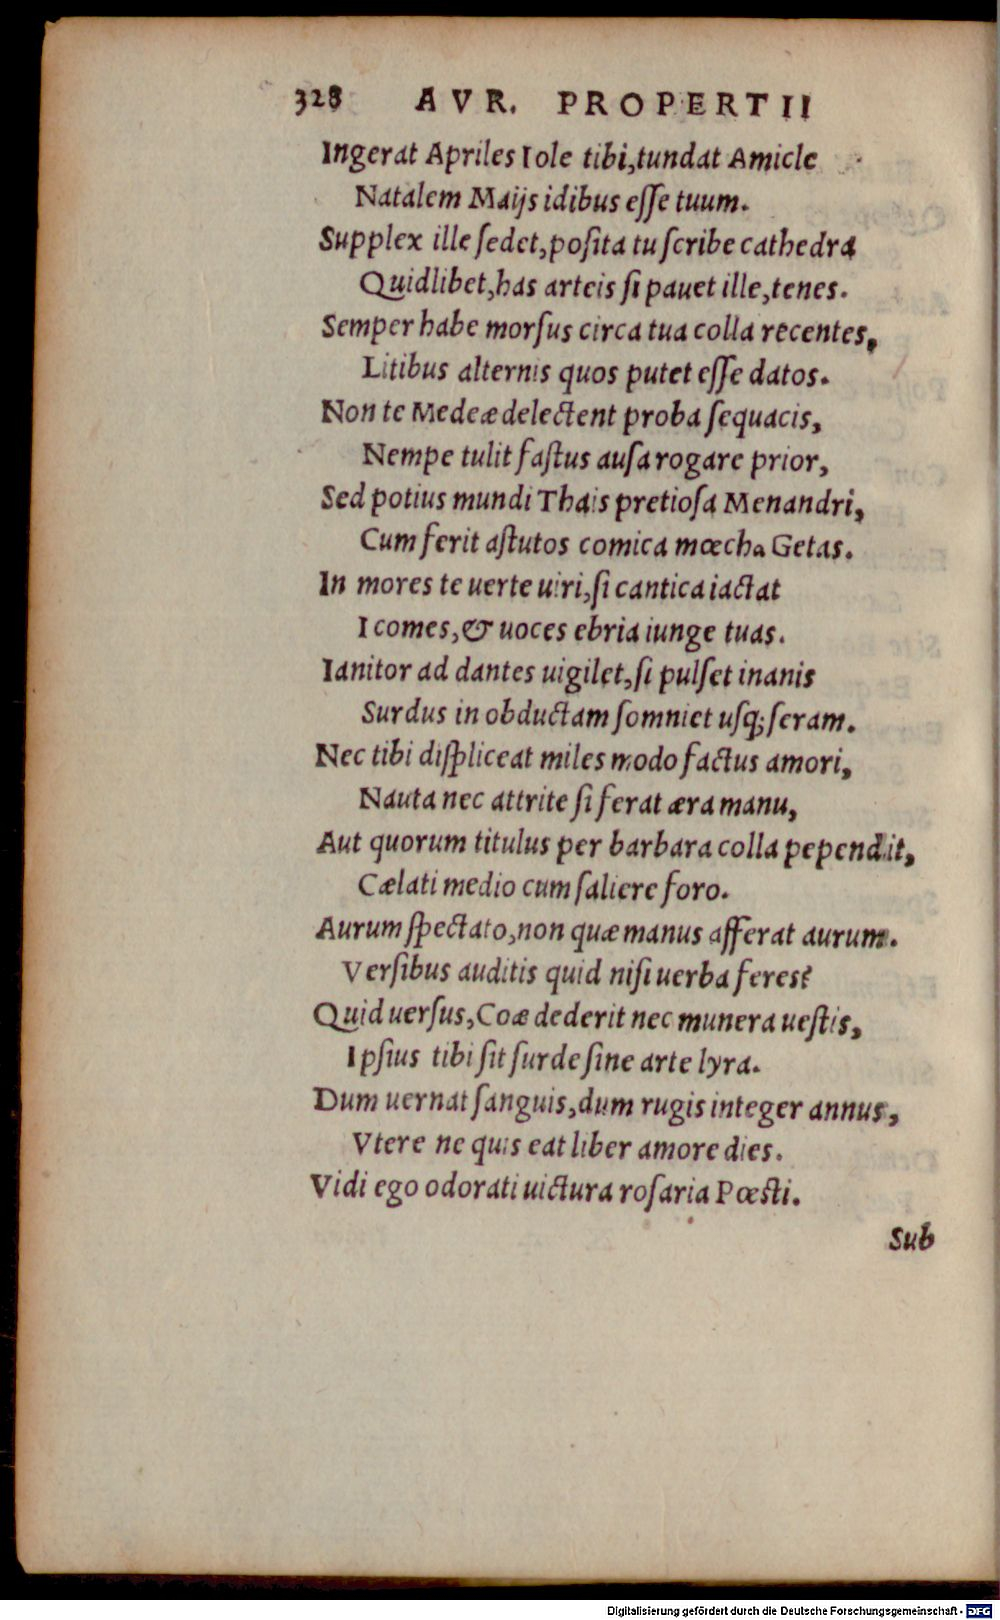 328 AVR. PROPERTII
Ingerat Apriles Iole tibi, tundat Amicle
Natalem Maijs idibus eſſe tuum.
Supplex ille ſedet, poſita tu ſcribe cathedra
Quidlibet, has arteis ſi pauet ille, tenes.
Semper habe morſus circa tua colla recentes,
Litibus alternis quos putet eſſe datos.
Non te Medeæ delectent proba ſequacis,
Nempe tulit faſtus auſa rogare prior,
Sed potius mundi Thais pretioſa Menandri,
Cum ferit aſtutos comica mœcha Getas.
In mores te uerte uiri, ſi cantica iactat
I comes, & uoces ebria iunge tuas.
Ianitor ad dantes uigilet, ſi pulſet inanis
Surdus in obductam ſomniet uſq; ſeram.
Nec tibi diſpliceat miles modo factus amori,
Nauta nec attrite ſi ferat æra manu,
Aut quorum titulus per barbara colla pependit,
Cælati medio cum ſaliere foro.
Aurum ſpectato, non quæ manus afferat aurum.
Verſibus auditis quid niſi uerba feres?
Quid uerſus, Coæ dederit nec munera ueſtis,
Ipſius tibi ſit ſurde ſine arte lyra.
Dum uernat ſanguis, dum rugis integer annus,
Vtere ne quis eat liber amore dies.
Vidi ego odorati uictura roſaria Pœſti.
Sub
Digitalisierung gefördert durch die Deutsche Forschungsgemeinschaft - DFG